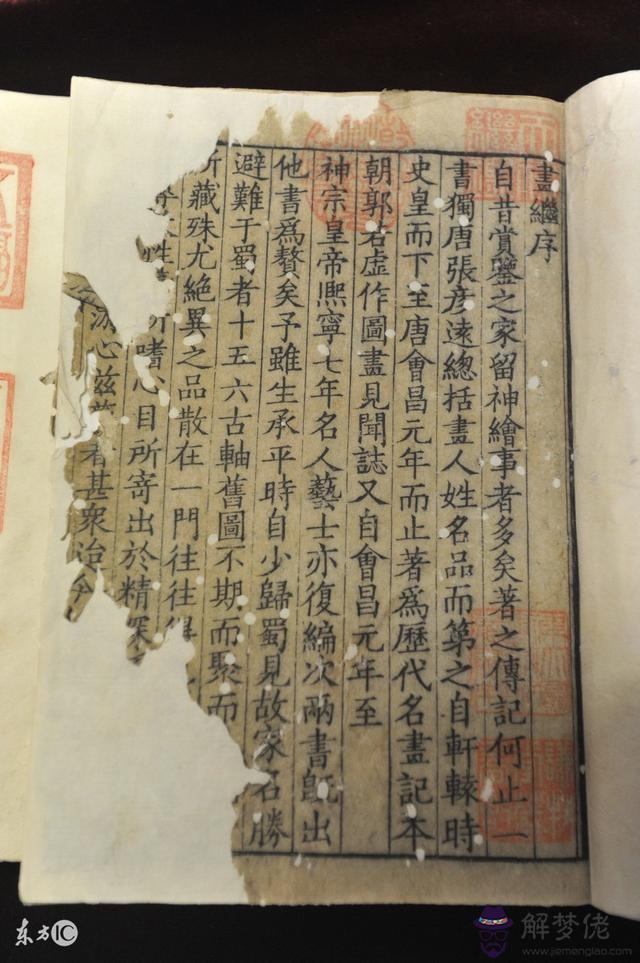 畫繼序
自昔賞鑒之家留神繪事者多矣著之傳記何止一
書獨唐張彥遠總括畫人姓名品而第之自軒轅時
史皇而下至唐會昌元年而止著爲歷代名畫記本
朝郭若虛作圖畫見聞誌又自會昌元年至
神宗皇帝熈寧七年名人藝士亦復編次兩書既出
他書爲贅矣予雖生承平時自少歸蜀見故家名勝
避難于蜀者十五六古軸舊圖不期而聚而
所藏殊尤絶異之品散在一門往往得
性所嗜心目所寄出於精深
游心茲藝者甚衆迨今
东方IC
解梦佬
www.jiemenglao.com